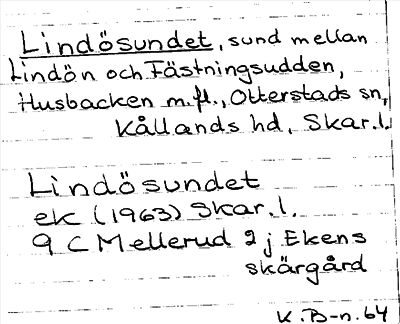 Lindösundet, sund mellan
Lindön och Fästningsudden,
Husbacken m.fl., Otterstads sn,
Kållands hd, Skar.l.
Lindösundet
ek (1963) Skar.l.
9 C Mellerud 2 j Ekens
skärgård
K. B-n. 64